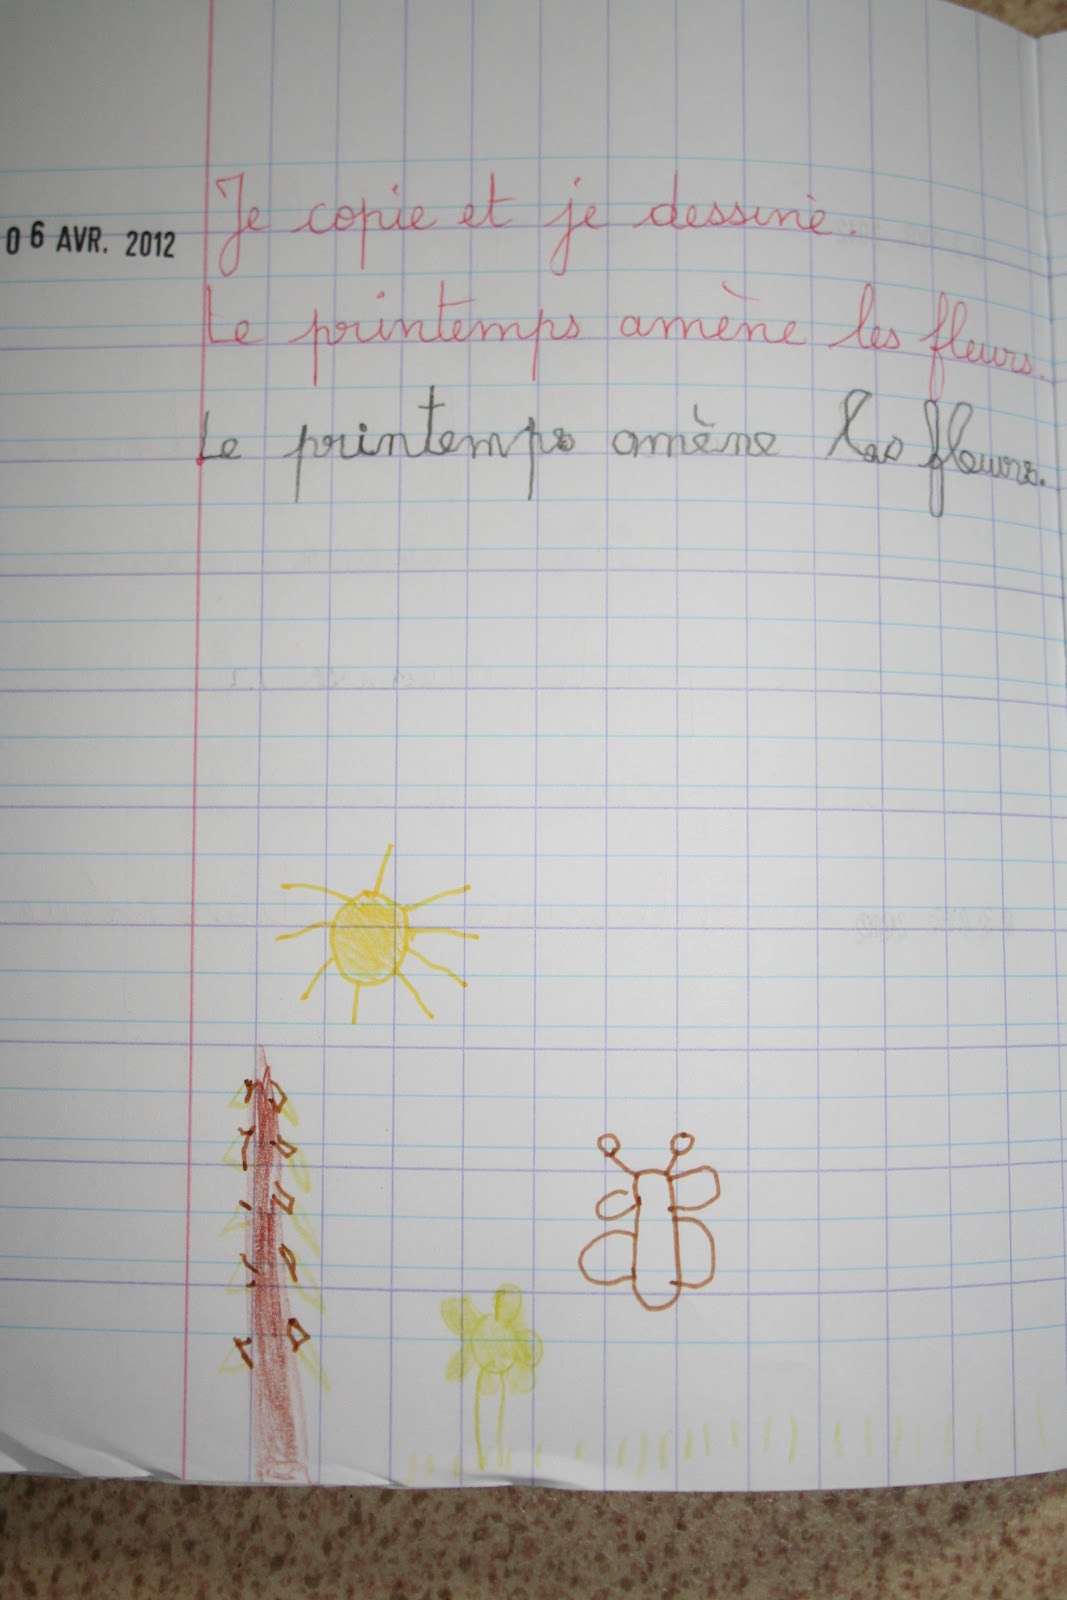 06 AVR. 2012 Je copie et je dessine.
Le printemps amène les fleurs.
Le printemps amène les fleurs.